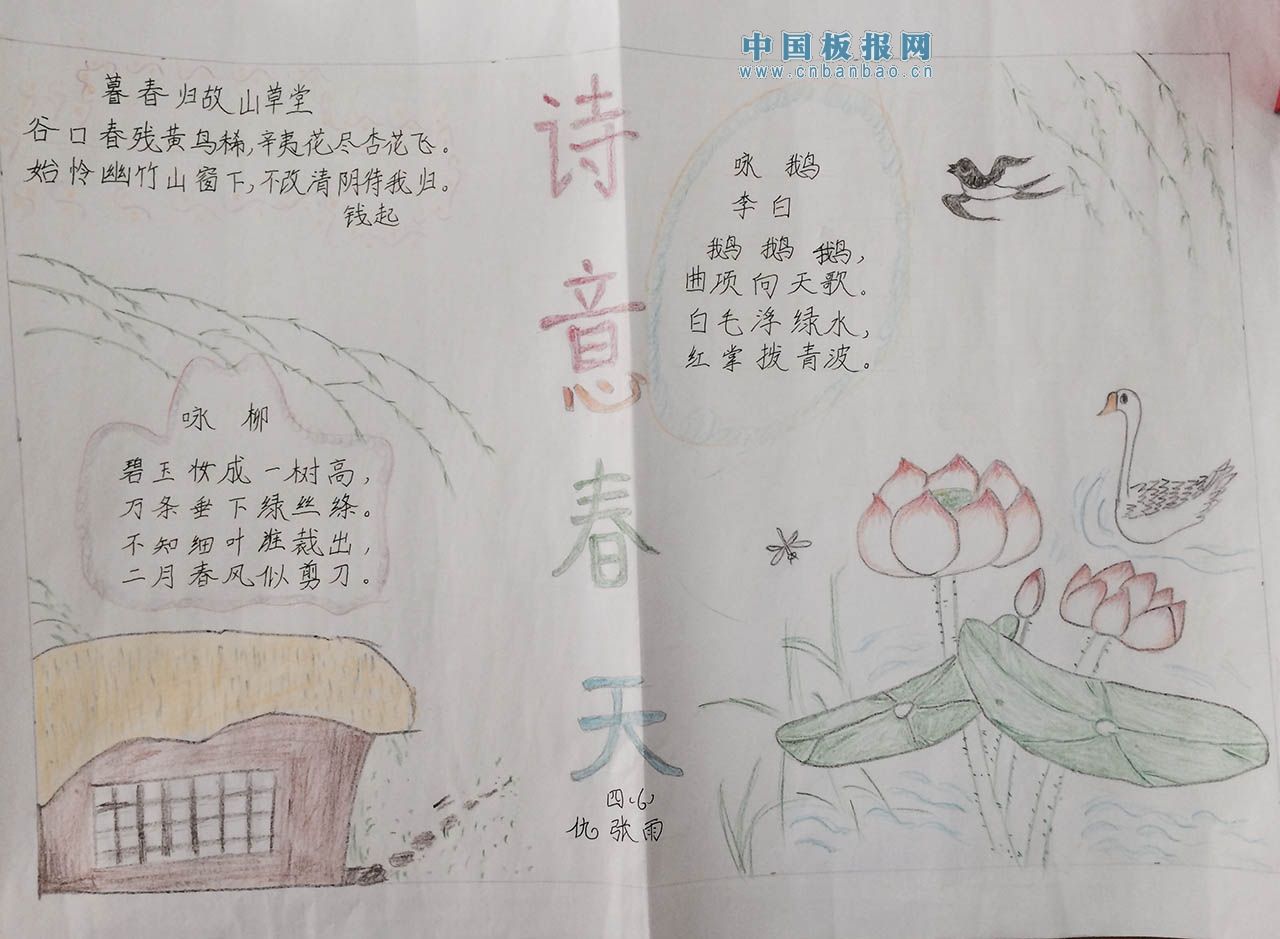 中国板报网
www.cnbanbao.cn
暮春归故山草堂
谷口春残黄鸟稀,辛夷花尽杏花飞。
始怜幽竹山窗下,不改清阴待我归。
钱起
咏柳
碧玉妆成一树高,
万条垂下绿丝绦。
不知细叶谁裁出,
二月春风似剪刀。
诗意春天
四(6)
仇张雨
咏鹅
李白
鹅鹅鹅,
曲项向天歌。
白毛浮绿水,
红掌拨青波。